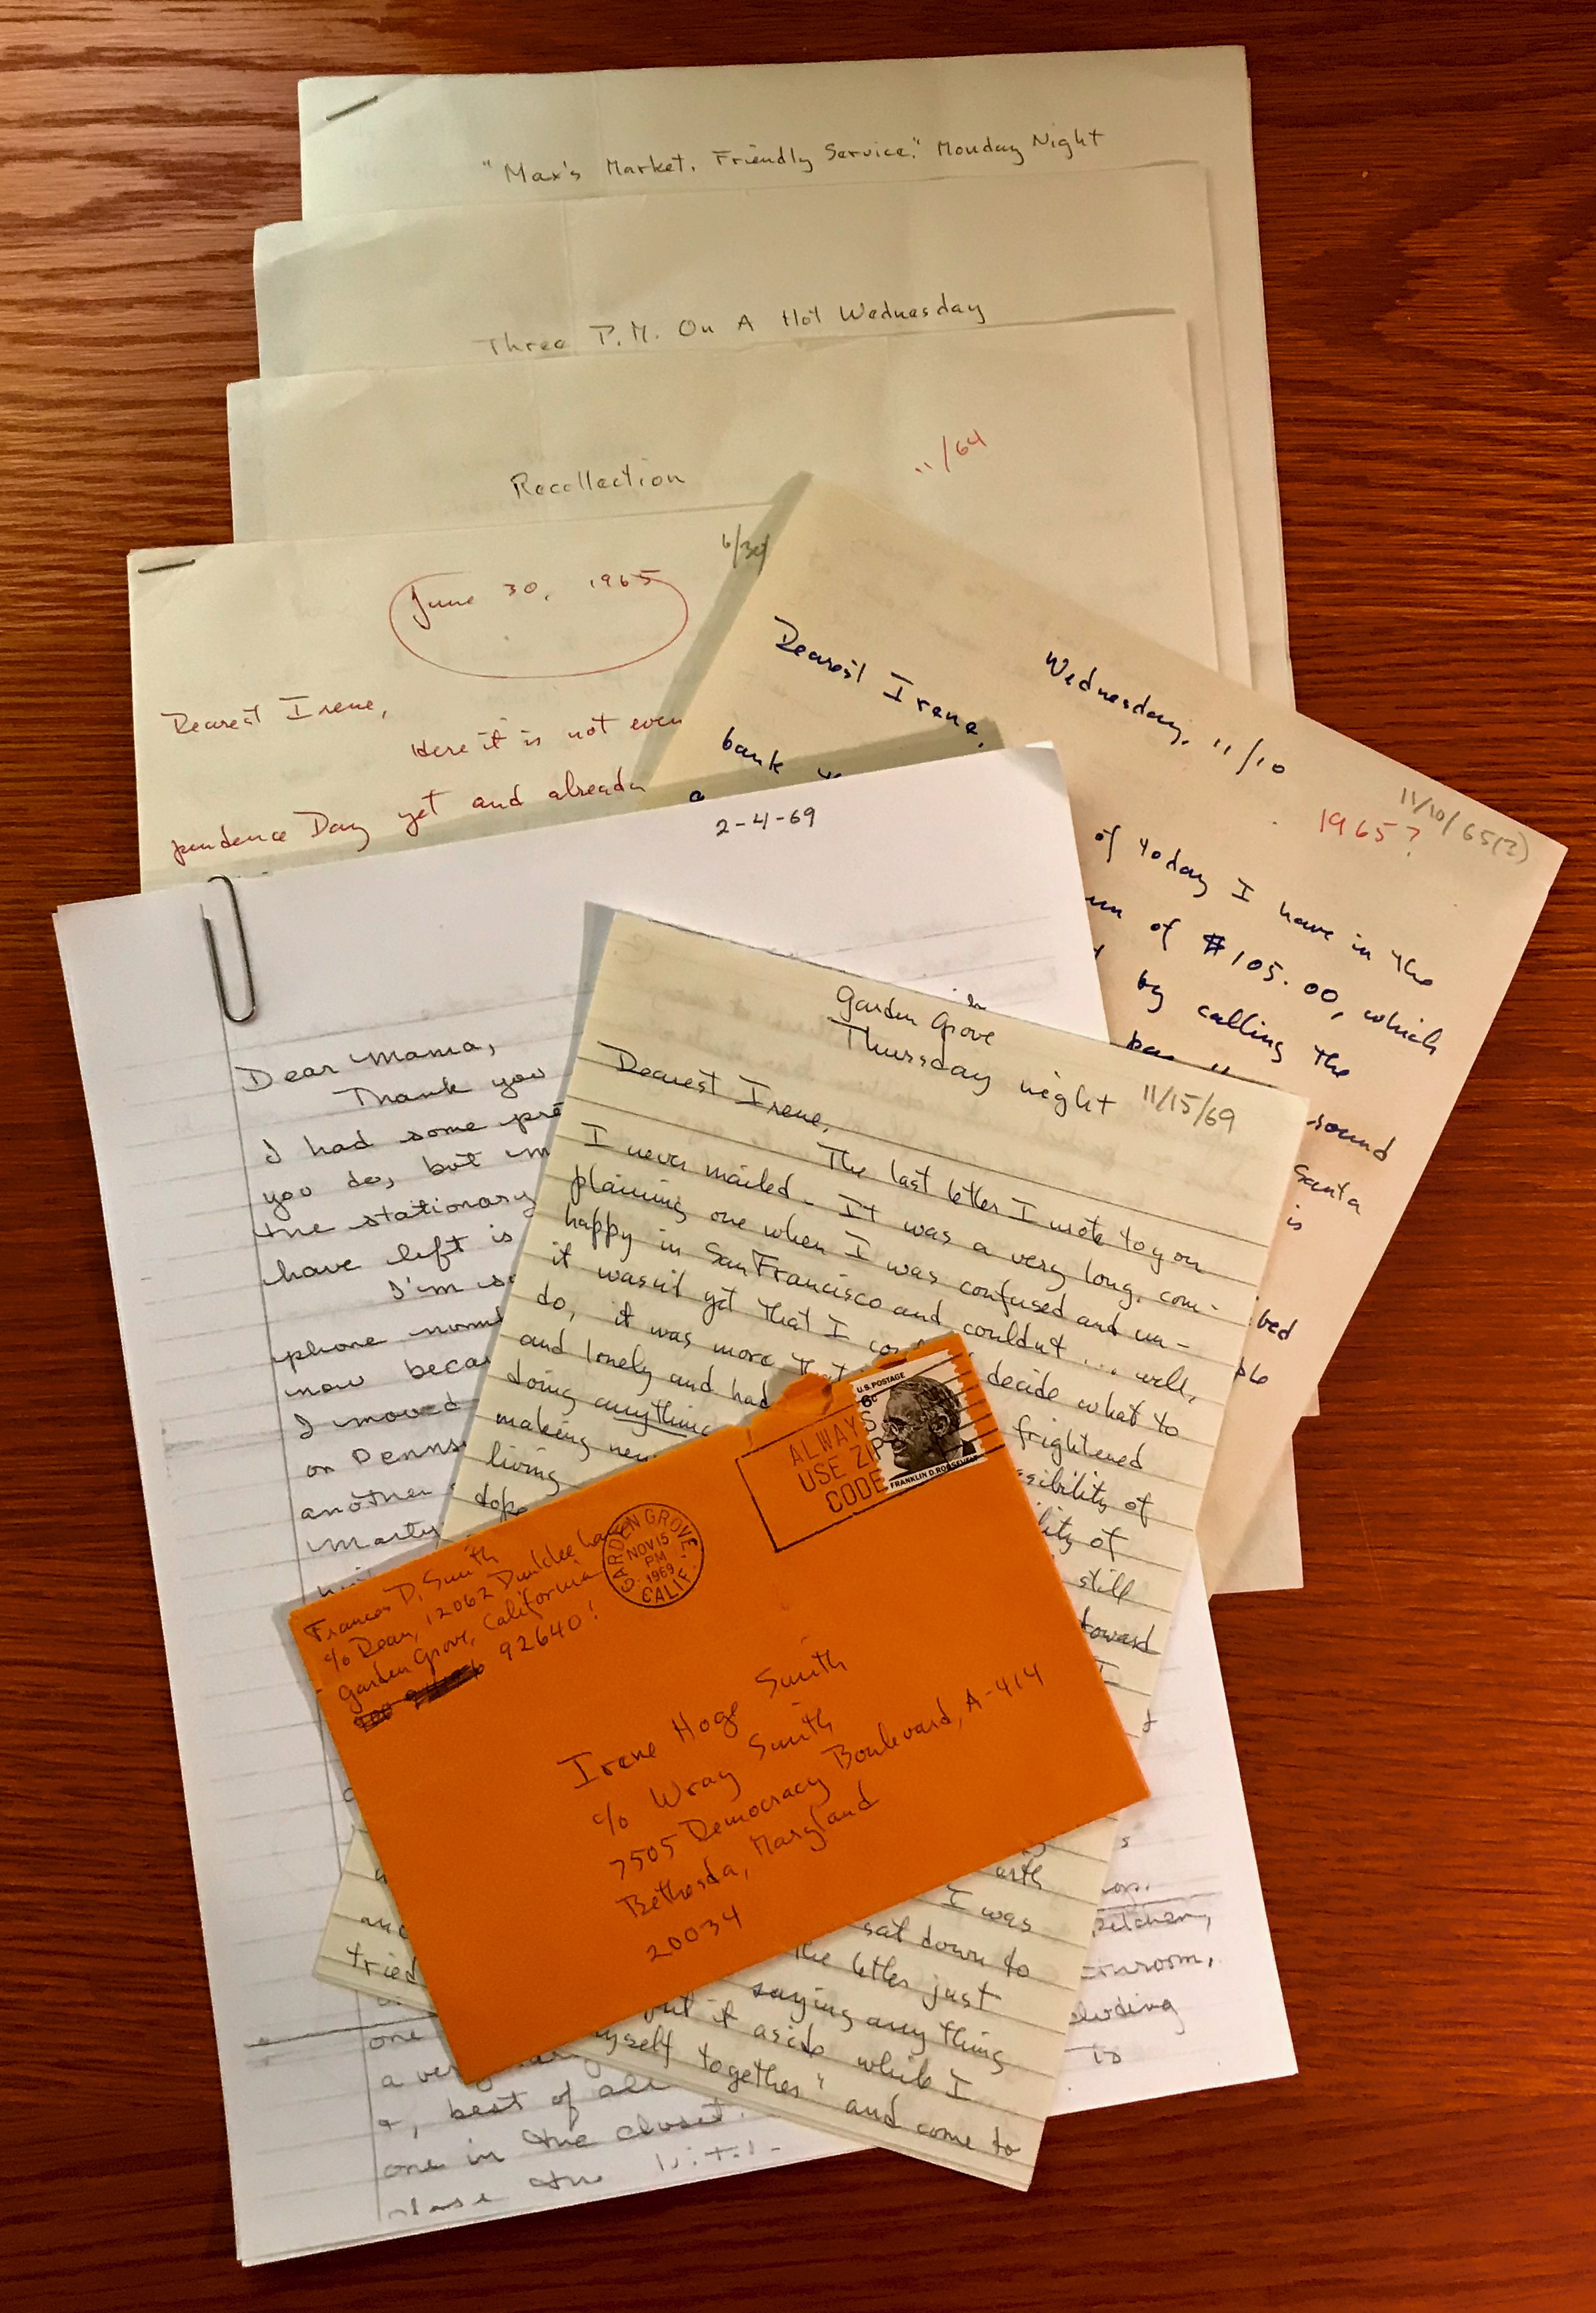 "Max's Market. Friendly Service." Monday Night
Three P.M. On A Hot Wednesday
11/64
Recollection
6/30/
June 30, 1965
Dearest Irene,
Here it is not even
pendence Day yet and already
Wednesday, 11/10
11/10/65(?)
1965?
Dearest Irene,
bank
a
of today I have in the
of $105.00, which
by calling the
sound
Santa
is
2-4-69
Dear Mama,
Thank you
I had some pre
you do, but
the stationary
have left is
I'm so
phone numb
now becau
I moved
on Penns
another
Marty
one
a very
+, best of all
one in the closet.
kitchen,
Garden Grove
Thursday night
11/15/69
Dearest Irene,
The last letter I wrote to you
I never mailed. It was a very long, com-
plaining one when I was confused and un-
happy in San Francisco and couldn't ... well,
it wasn't yet that I decide what to
do, it was more that frightened
and lonely and had ssibility of
doing anything lity of
making new still
living toward
dope I
I was
and sat down to
tried the letter just
saying anything
put it aside while I
myself together" and come to
U.S. POSTAGE
6c
FRANKLIN D. ROOSEVELT
ALWAYS
USE ZIP
CODE
GARDEN GROVE,
NOV 15
PM
1969
CALIF.
Frances D. Smith
c/o Dean, 12062 Dundee Lane
Garden Grove, California
92640!
Irene Hoge Smith
c/o Wray Smith
7505 Democracy Boulevard, A-414
Bethesda, Maryland
20034